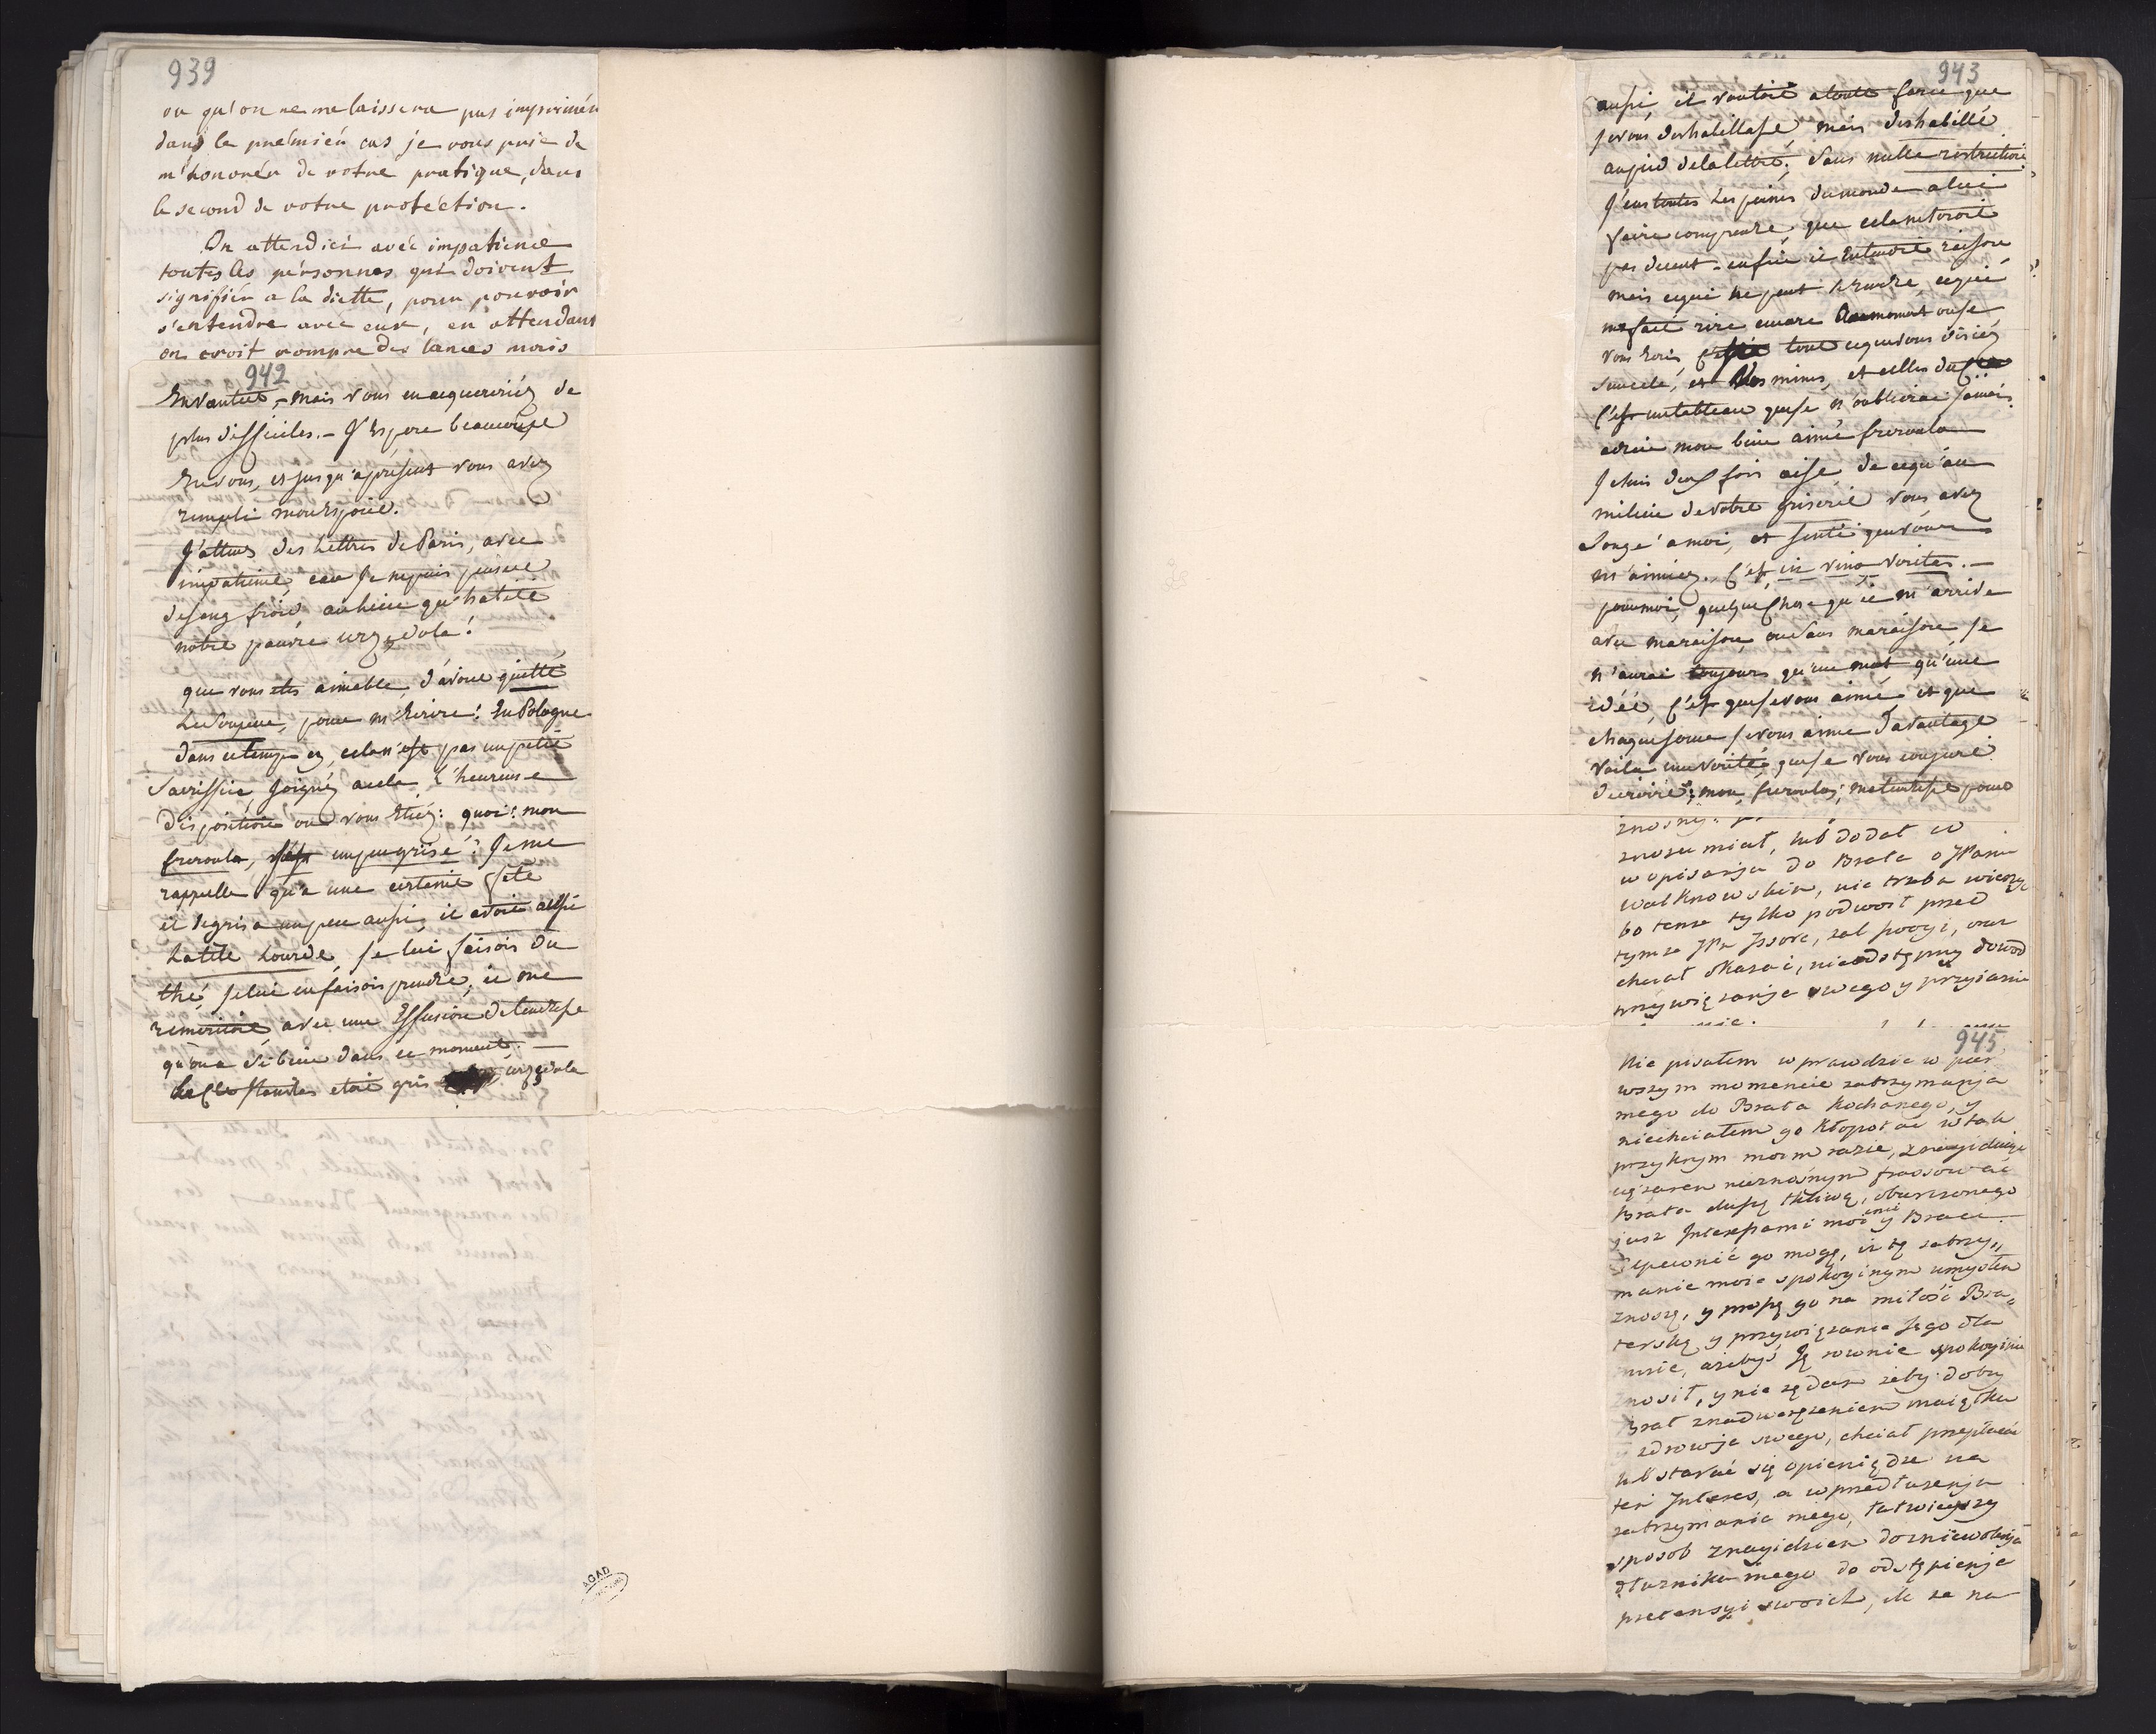 939
ou qu'on ne me laissera pas imprimér
dans le prémiér cas je vous prie de
m'honorér de votre pratique, dans
le second de votre protéction.
On attend ici avéc impatience
toutes les pérsonnes qui doivent
signifiér a la diette, pour pouvoir
s'entendre avéc eux, en attendant
on croit rompre des lances mais
942
mais vous en acquereriéz de
plus difficiles. - J'espere beaucoupe
En vous, et jusqu'apresent vous avez
rempli mon espoir.
J'attens des lettres de Paris, avec
impatience, car je ne puis penser
de sang froid au lieu qu'habite
notre pauvre urzedola!
que vous etes aimable, d'avoir quitté
Le Soupeur, pour m'Ecrire! En Pologne
dans ce temps cy, cela n'est pas un petit
Sacriffice, joignéz acela l'heureuse
disposition ou vous Etiéz: quoi! mon
freroula, un peu grisé? Je me
rappelle qu'a une certaine fete
il se grisa un peu aussi, il avoit aussi
La tete Lourde, je lui faisois du
thé, je lui en faisois prendre, il me
remercioit avec une Effusion de tendresse
qu'on a si bien dans ce moment. —
etoit gris urzedola
943
aussi, il vouloit a toute force que
je vous deshabillasse mais deshabillé
au pied de la lettre. Sans nulle restriction
J'eus toutes Les peines du monde a lui
faire comprendre, que cela ne seroit
pas decent - enfin il Entendit raison
mais ce qui ne peut se rendre, ce qui
me fait rire encore au moment ou je
vous Ecris, c'est tout ce que vous disiéz
sur cela, et Vos mines, et celles du
C'est un tableau que je n'oublierai jamais.
adieu mon bien aimé freroula
Je suis deux fois aise, de ce qu'au
milieu de votre griserie vous avez
Songé a moi, et senti que vous
m'aimiez. C'est in vino veritas. —
pour moi, quelque chose qu'il m'arrive
avec ma raison, ou sans ma raison je
n'aurai toujours qu'un mot qu'une
idéé, C'est que je vous aime, et que
chaque jour je vous aime d'avantage
Voila une verité, que je vous conjure
de croire, mon freroula, ma tendresse pour
zrozumiał, lub dodał w
w opisanju do Brata o JPanu
Walknowskim, nie trzeba wierzyć
bo tense tylko podwoił przed
tymze JPa
chciał okazać, nieodstępny dowod
przywiązanja swego y przyiazni
945
Nie pisałem w prawdzie w pier
wszym momencie zatrzymanja
mego do Brata Kochanego, y
niechciałem go kłopotać w tak
przykrym moim razie,
ciężarem nieznośnym frasować
Brata duszę tkliwą, obarczonego
jusz Interessami moiemi y Braci.
Upewnić go mogę, iż tę zatrzy„
manie moie spokoyinym umysłem
znoszę, y proszę go na miłość Bra„
terską y przywiązanie Jego dla
mnie, ażebyś Ją rownie spokoyinie
znosił, y nie żądam żeby dobry
Brat z nadwerężeniem maiątku
y zdrowja swego, chciał przepłacać
lub starać się o pieniądze na
ten Interes, a w przedłużenju
zatrzymania mego, łatwieyszy
sposob znayidziem do zniewolenja
dłużnika mego do odstąpienja
pretensyi swoich, ile ze na
AGAD